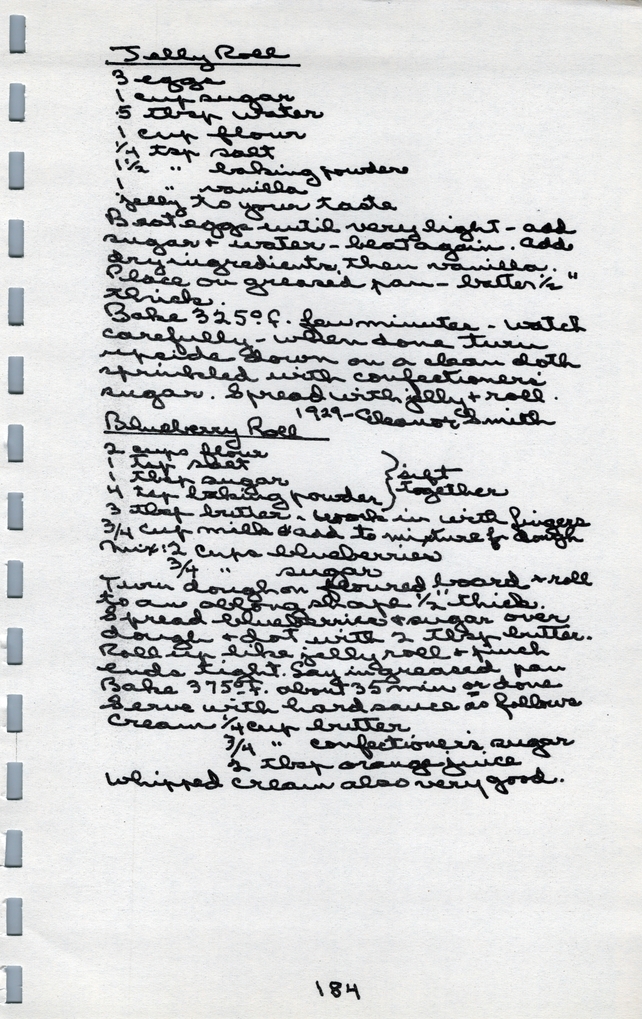 Jelly Roll
3 eggs
1 cup sugar
5 tbsp water
1 cup flour
1/4 tsp salt
1 1/2 " baking powder
1 " vanilla
jelly to your taste
Beat eggs until very light - add
sugar + water - beat again. Add
dry ingredients, then vanilla.
Place on greased pan - batter 1/2"
thick.
Bake 325° F. few minutes - watch
carefully - when done turn
upside down on a clean cloth
sprinkled with confectioners'
sugar. Spread with jelly + roll.
1929 - Eleanor Smith
Blueberry Roll
2 cups flour
1 tsp salt
1 tbsp sugar
4 tsp baking powder } sift together
3 tbsp butter - work in with fingers
3/4 cup milk & add to mixture for dough
Mix: 2 cups blueberries
3/4 " sugar
Turn dough on floured board + roll
to an oblong shape 1/2" thick.
Spread blueberries + sugar over
dough + dot with 2 tbsp butter.
Roll up like jelly roll + pinch
ends tight. Lay in greased pan
Bake 375° F. about 35 min or done
Serve with hard sauce as follows
Cream 1/4 cup butter
3/4 " confectioner's sugar
2 tbsp orange juice
Whipped cream also very good.
184